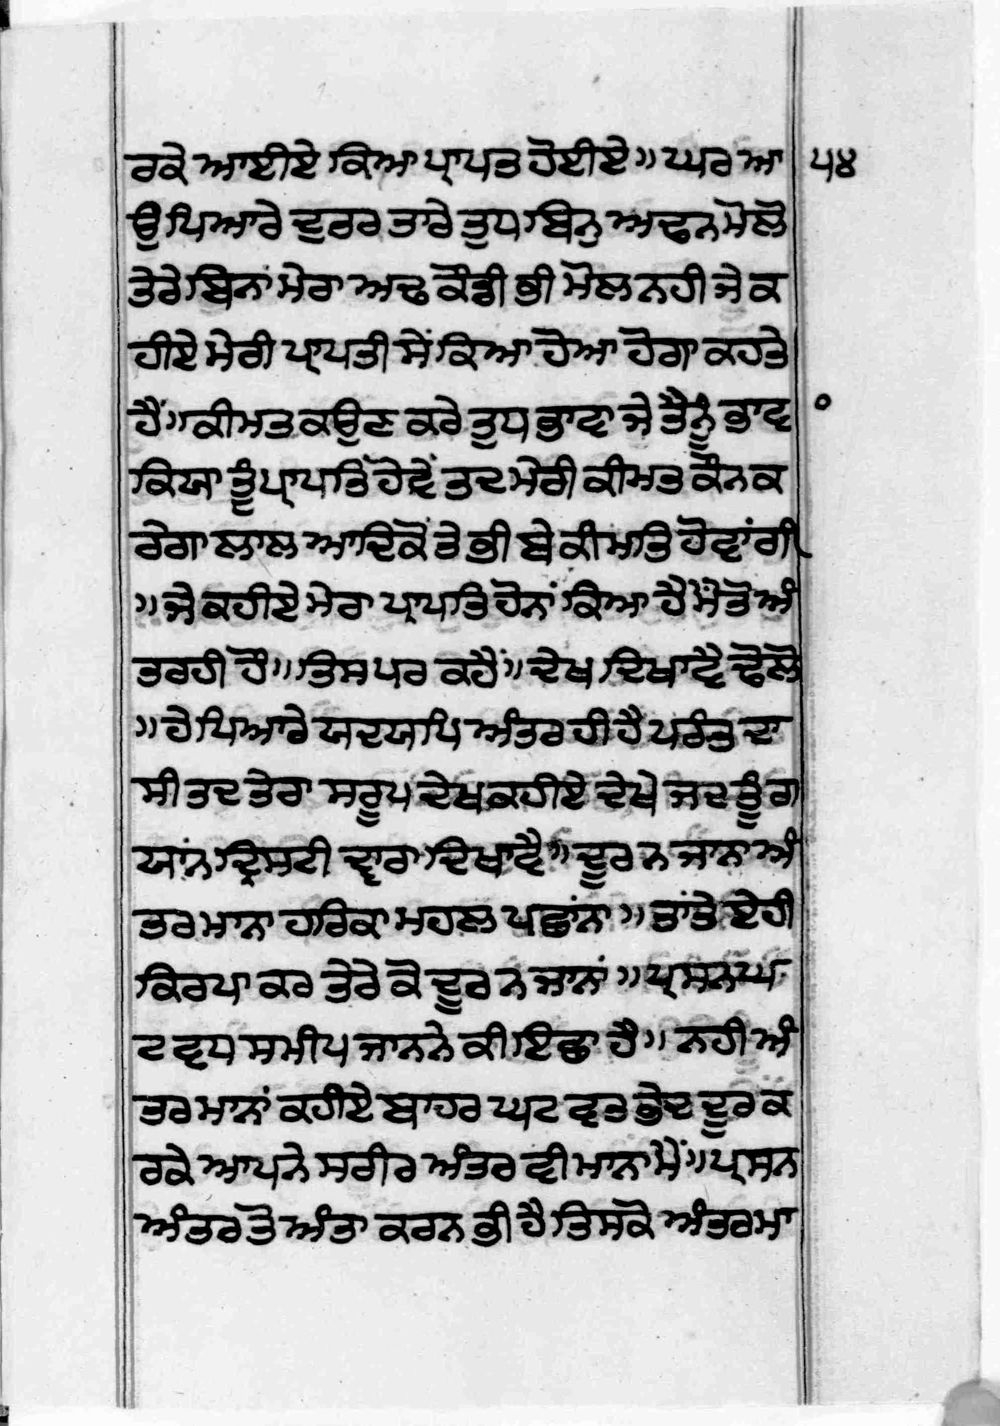 ਰਕੇ ਆਈਏ ਕਿਆ ਪ੍ਰਾਪਤ ਹੋਈਏ॥ ਘਰ ਆ ੫੪
ਉ ਪਿਆਰੇ ਦੁਤਰ ਤਾਰੇ ਤੁਧ ਬਿਨੁ ਅਢਨ ਮੋਲੋ
ਤੇਰੇ ਬਿਨਾਂ ਮੇਰਾ ਅਢ ਕੌਡੀ ਭੀ ਮੋਲ ਨਹੀ ਜੇ ਕ
ਹੀਏ ਮੇਰੀ ਪ੍ਰਾਪਤੀ ਸੇਂ ਕਿਆ ਹੋਆ ਹੋਗਾ ਕਹਤੇ
ਹੈਂ॥ ਕੀਮਤ ਕਉਣ ਕਰੇ ਤੁਧ ਭਾਵਾ ਜੇ ਤੈਨੂੰ ਭਾਵ
ਕਿਯਾ ਤੂੰ ਪ੍ਰਾਪਤਿ ਹੋਵੇਂ ਤਦ ਮੇਰੀ ਕੀਮਤ ਕੌਨ ਕ
ਰੇਗਾ ਲਾਲ ਆਦਿਕੋਂ ਤੇ ਭੀ ਬੇ ਕੀਮਤਿ ਹੋਵਾਂਗੀ
॥ ਜੇ ਕਹੀਏ ਮੇਰਾ ਪ੍ਰਾਪਤਿ ਹੋਨਾਂ ਕਿਆ ਹੈ ਮੈ ਤੋ ਅੰ
ਤਰ ਹੀ ਹੌਂ॥ ਤਿਸ ਪਰ ਕਹੈਂ॥ ਦੇਖ ਦਿਖਾਵੈ ਢੋਲੋ
॥ ਹੇ ਪਿਆਰੇ ਯਦਯਪਿ ਅੰਤਰ ਹੀ ਹੈ ਪਰੰਤੁ ਦਾ
ਸੀ ਤਦ ਤੇਰਾ ਸਰੂਪ ਦੇਖ ਕਹੀਏ ਦੇਖੇ ਜਦ ਤੂੰ ਗ
ਯਾਂਨ ਦ੍ਰਿਸਟੀ ਦ੍ਵਾਰਾ ਦਿਖਾਵੈ॥ ਦੂਰ ਨ ਜਾਨਾ ਅੰ
ਤਰ ਮਾਨਾ ਹਰਿ ਕਾ ਮਹਲ ਪਛਾਂਨਾ॥ ਤਾਂਤੇ ਏਹੀ
ਕਿਰਪਾ ਕਰ ਤੇਰੇ ਕੋ ਦੂਰ ਨ ਜਾਨਾਂ॥ ਪ੍ਰਸਨ ਘ
ਟ ਵਧ ਸਮੀਪ ਜਾਨਨੇ ਕੀ ਇਛਾ ਹੈ॥ ਨਹੀ ਅੰ
ਤਰ ਮਾਨਾਂ ਕਹੀਏ ਬਾਹਰ ਘਟ ਵਤ ਭੇਦ ਦੂਰ ਕ
ਰਕੇ ਆਪਨੇ ਸਰੀਰ ਅੰਤਰ ਵੀ ਮਾਨਾ ਮੈਂ॥ ਪ੍ਰਸਨ
ਅੰਤਰ ਤੋ ਅੰਤਾ ਕਰਨ ਭੀ ਹੈ ਤਿਸਕੋ ਅੰਤਰ ਮਾ